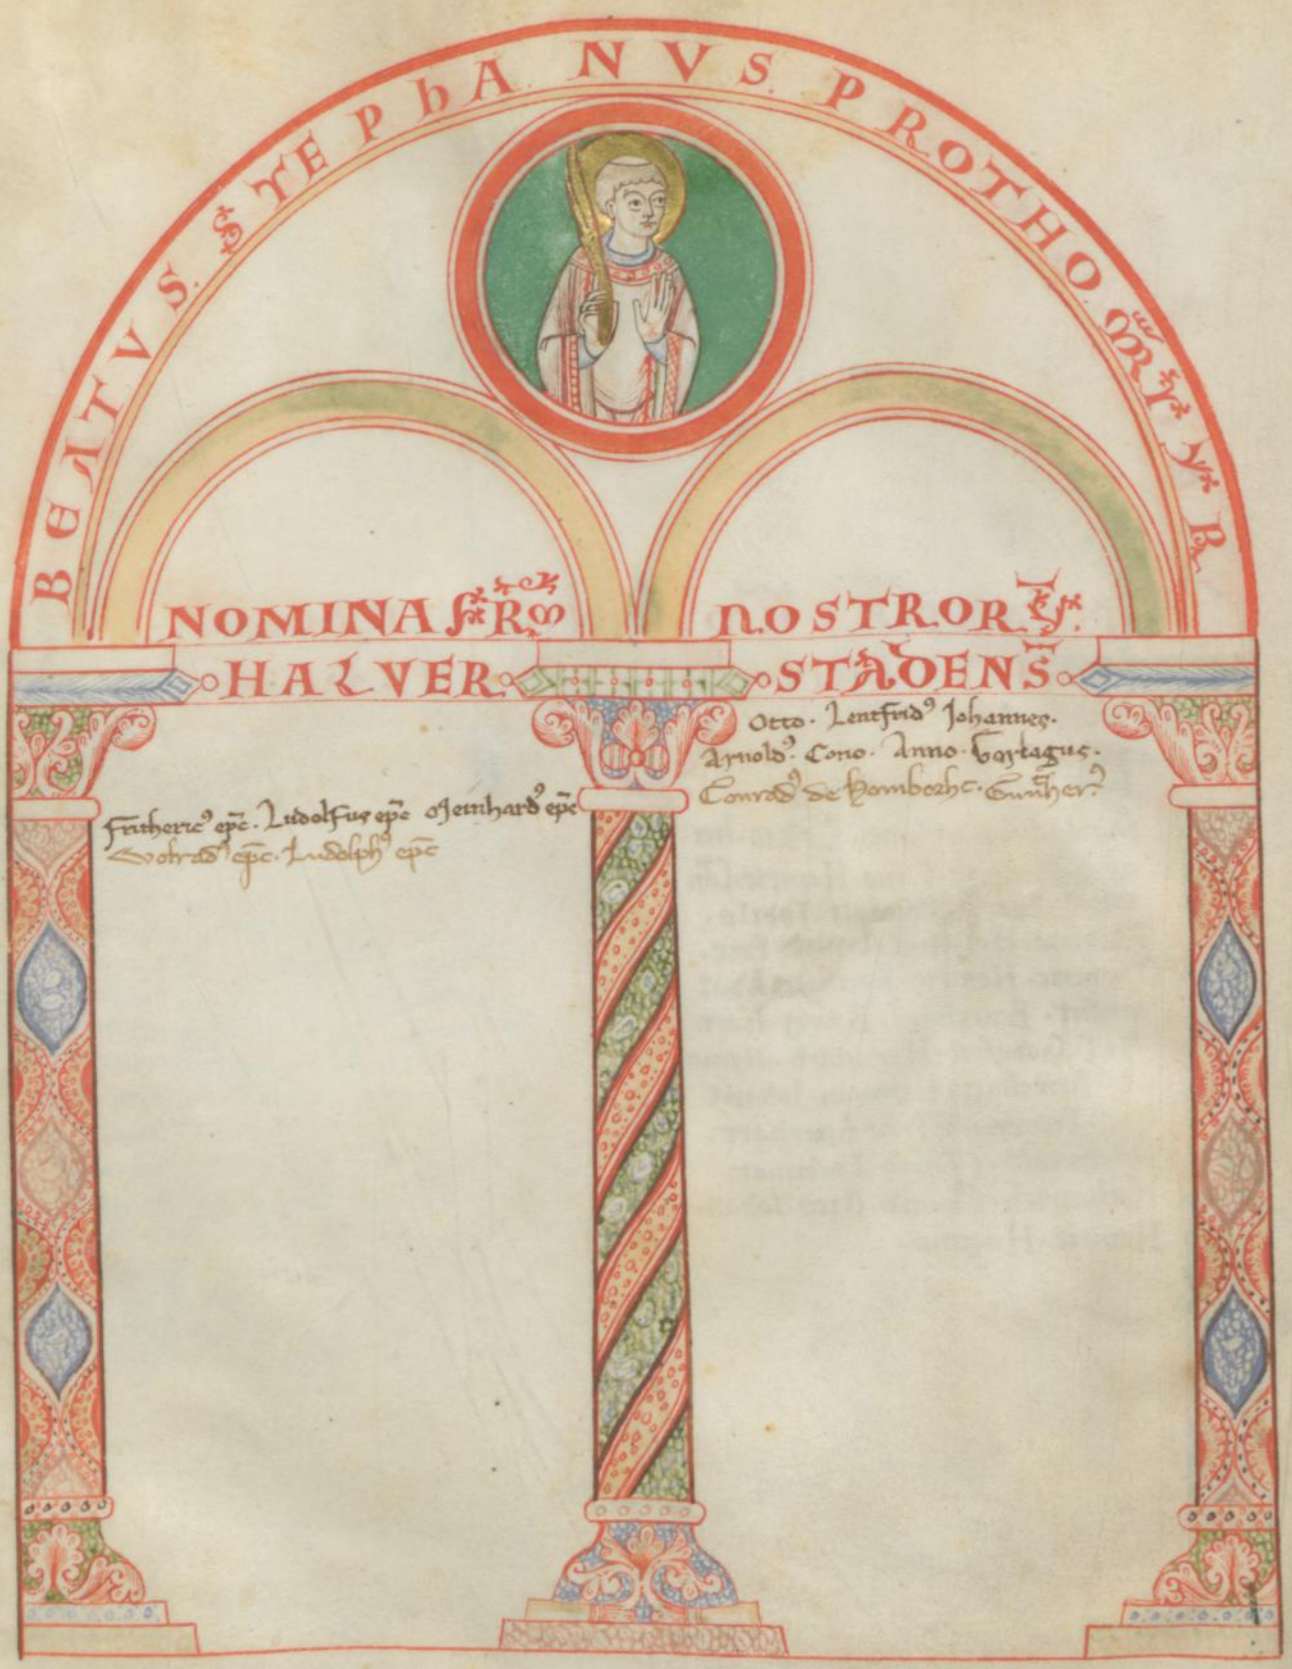 BEATVS. STEPhANVS. PROTHO. MARTYR
NOMINA FR̄M NOSTROR̄
HALVER STADENS̄
Frithericꝰ ep̄c. Ludolfus ep̄c Meinhardꝰ ep̄c
Volradꝰ ep̄c. Ludolphꝰ ep̄c
Otto. Lentfridꝰ Johannes.
Arnoldꝰ. Cono. Anno.
Conradꝰ de